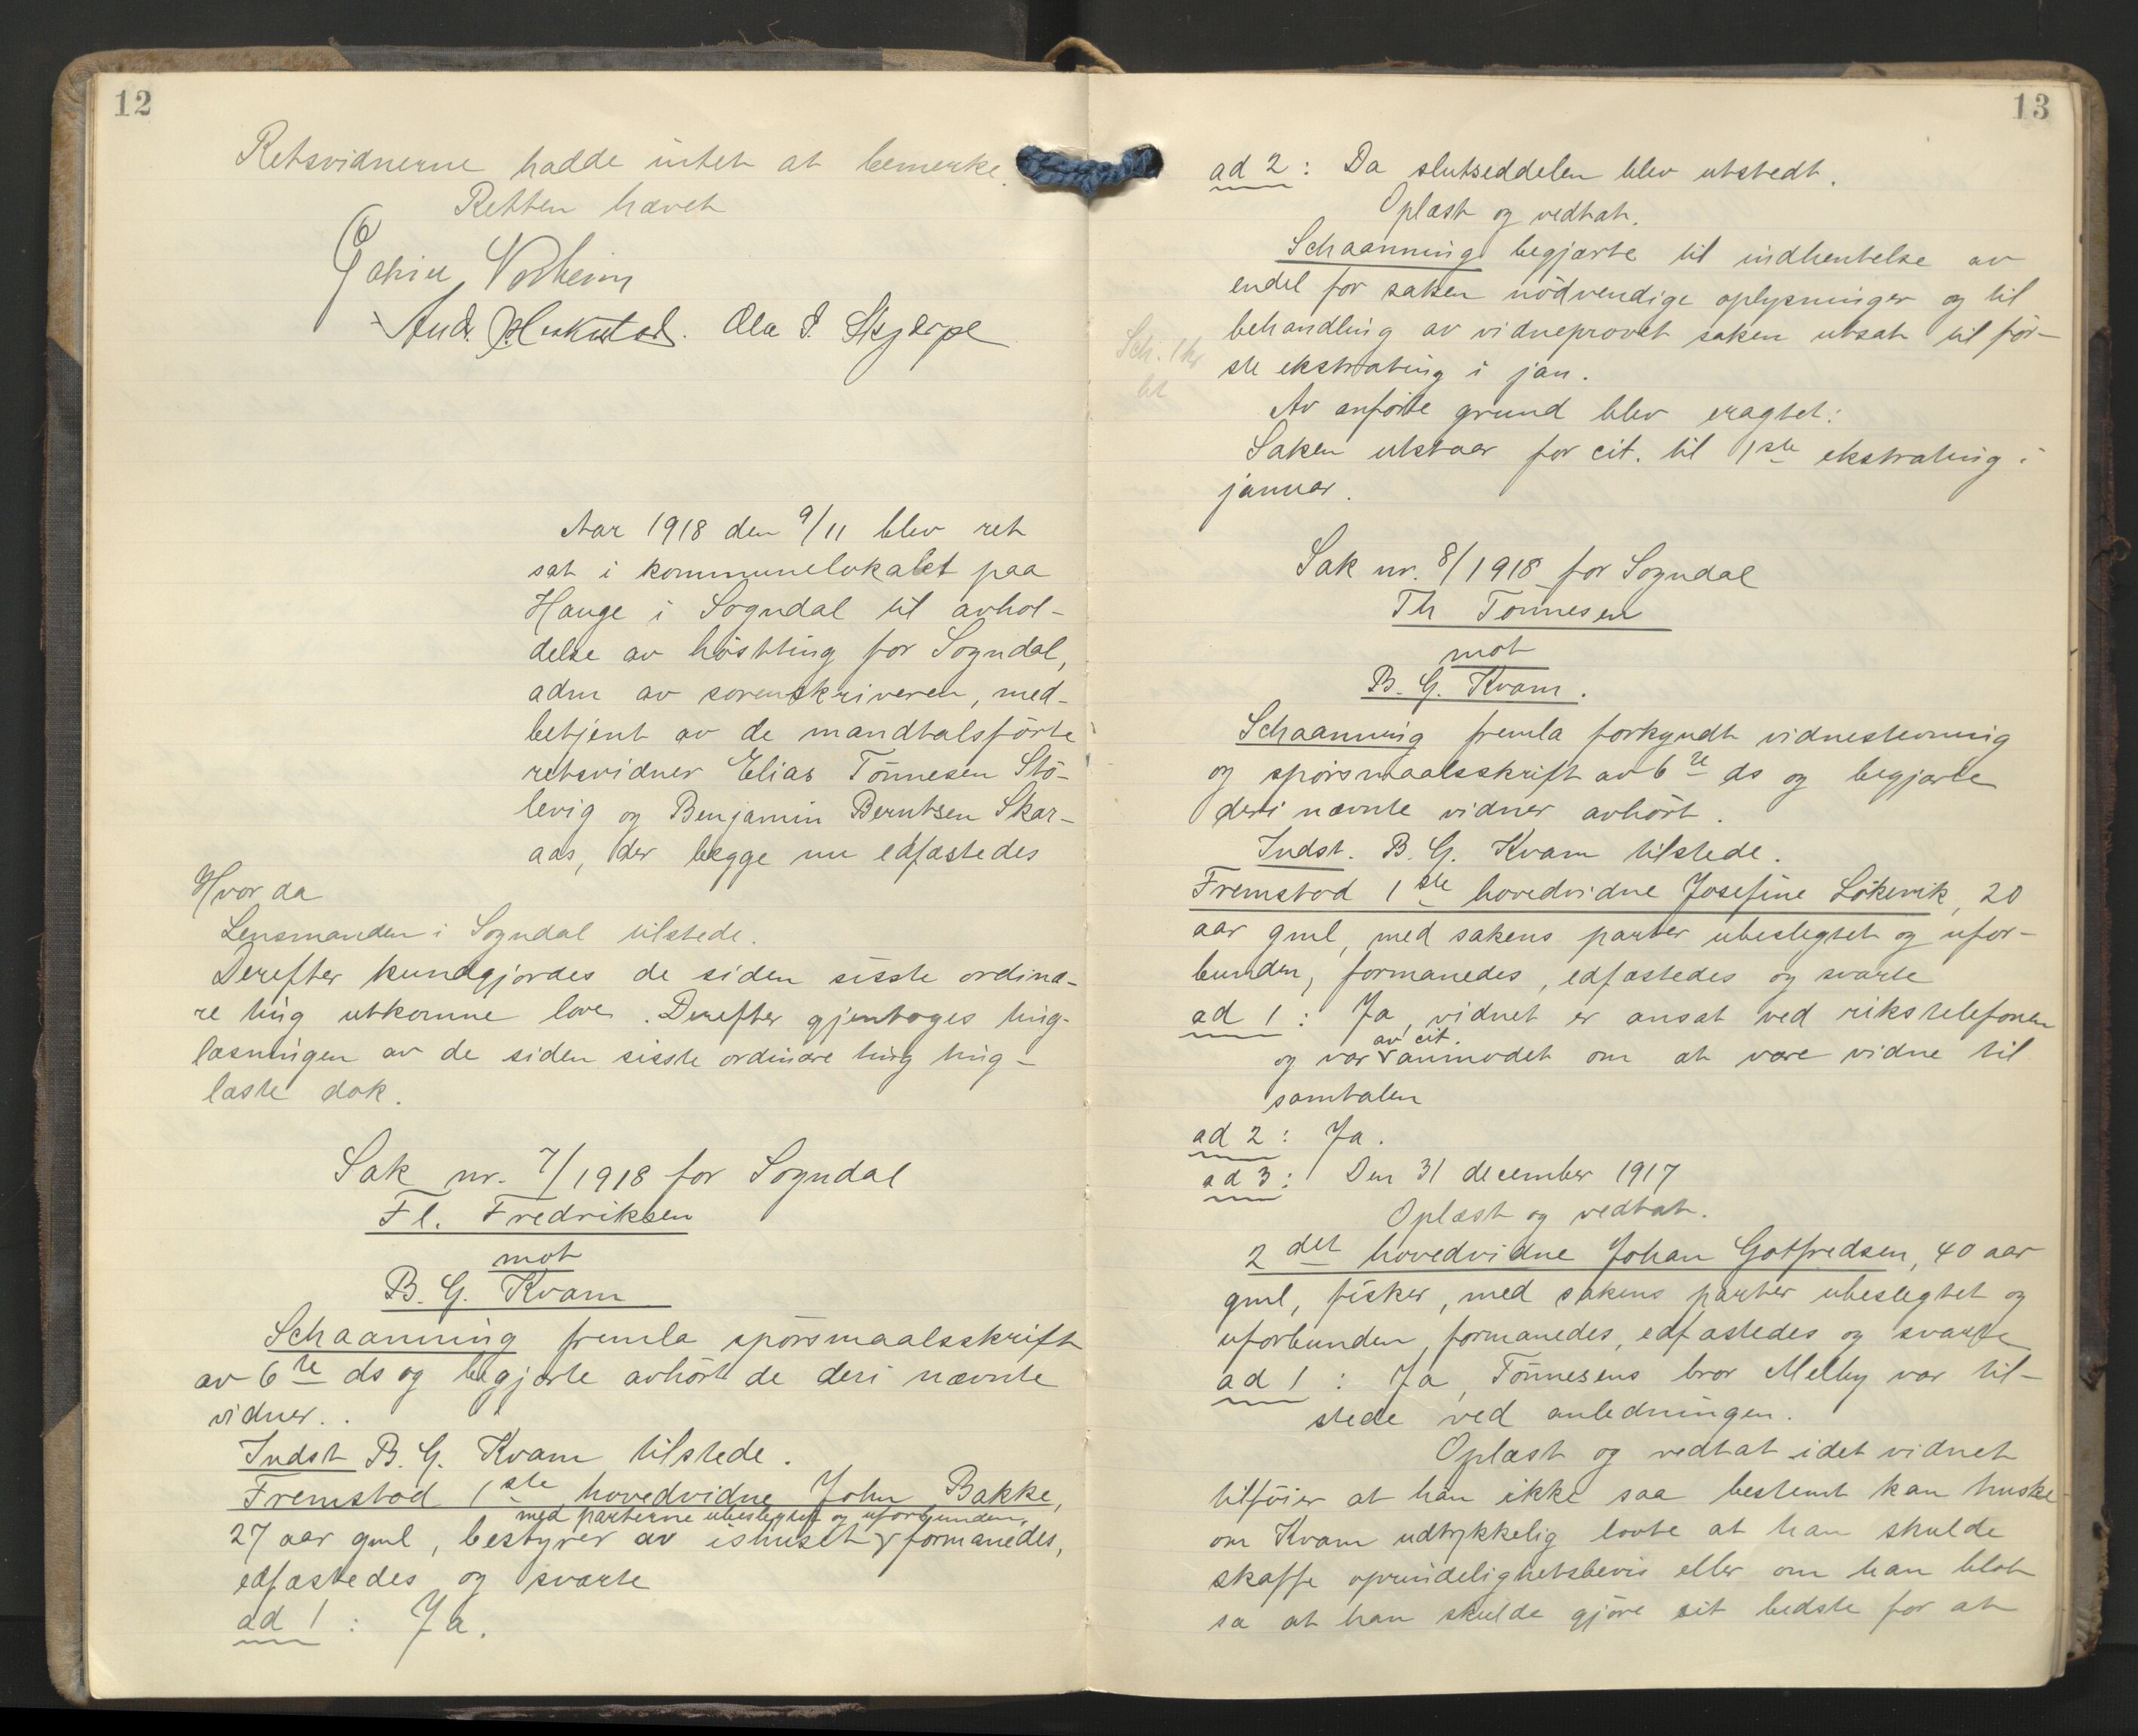 12
Retsvidnerne hadde intet at bemerke.
Retten hævet
Ola I. Skjerpe
Aar 1918 den 9/11 blev ret
sat i kommunelokalet paa
Hauge i Sogndal til avhol-
delse av høstting for Sogndal,
adm av sorenskriveren, med-
betjent av de mandtalsførte
retsvidner Elias Tönnesen Stö-
levig og Benjamin Berntsen Skar-
aas, der begge nu edfæstedes
Hvor da
Lensmanden i Sogndal tilstede.
Derefter kundgjordes de siden sisste ordinæ-
re ting utkomne love. Derefter gjentoges ting-
læsningen av de siden sisste ordinære ting ting-
læste dok.
Sak nr. 7/1918 for Sogndal
Fl. Fredriksen
mot
B. G. Kvam
Schaanning fremla spörsmaalsskrift
av 6te ds og begjærte avhört de deri nævnte
vidner.
Indst B. G. Kvam tilstede.
Fremstod 1ste hovedvidne John Bakke,
med parterne ubeslegtet og uforbunden,
27 aar gml, bestyrer av ishuset formanedes,
edfæstedes og svarte
ad 1: Ja.
13
ad 2: Da slutseddelen blev utstedt.
Oplæst og vedtat.
Schaanning begjærte til indhentelse av
endel for saken nödvendige oplysninger og til
behandling av vidneprovet saken utsat til för-
ste ekstrating i jan.
Av anförte grund blev eragtet:
Saken utstaar for cit. til 1ste ekstrating i
januar.
Sak nr. 8/1918 for Sogndal
Th Tönnesen
mot
B. G. Kvam.
Schaanning fremla forkyndt vidnestevning
og spörsmaalsskrift av 6te ds og begjærte
deri nævnte vidner avhört.
Indst. B. G. Kvam tilstede.
Fremstod 1ste hovedvidne Josefine Lökevik, 20
aar gml, med sakens parter ubeslegtet og ufor-
bunden, formanedes, edfæstedes og svarte
ad 1: Ja, vidnet er ansat ved rikstelefonen
av cit.
og var anmodet om at være vidne til
samtalen
ad 2: Ja.
ad 3: Den 31 december 1917
Oplæst og vedtat.
2det hovedvidne Johan Gotfredsen, 40 aar
gml, fisker, med sakens parter ubeslegtet og
uforbunden, formanedes, edfæstedes og svarte
ad 1: Ja, Tönnesens bror Melby var til-
stede ved anledningen.
Oplæst og vedtat idet vidnet
tilföier at han ikke saa bestemt kan huske
om Kvam udtrykkelig lovte at han skulde
skaffe oprindelighetsbevis eller om han blot
sa at han skulde gjöre sit bedste for at